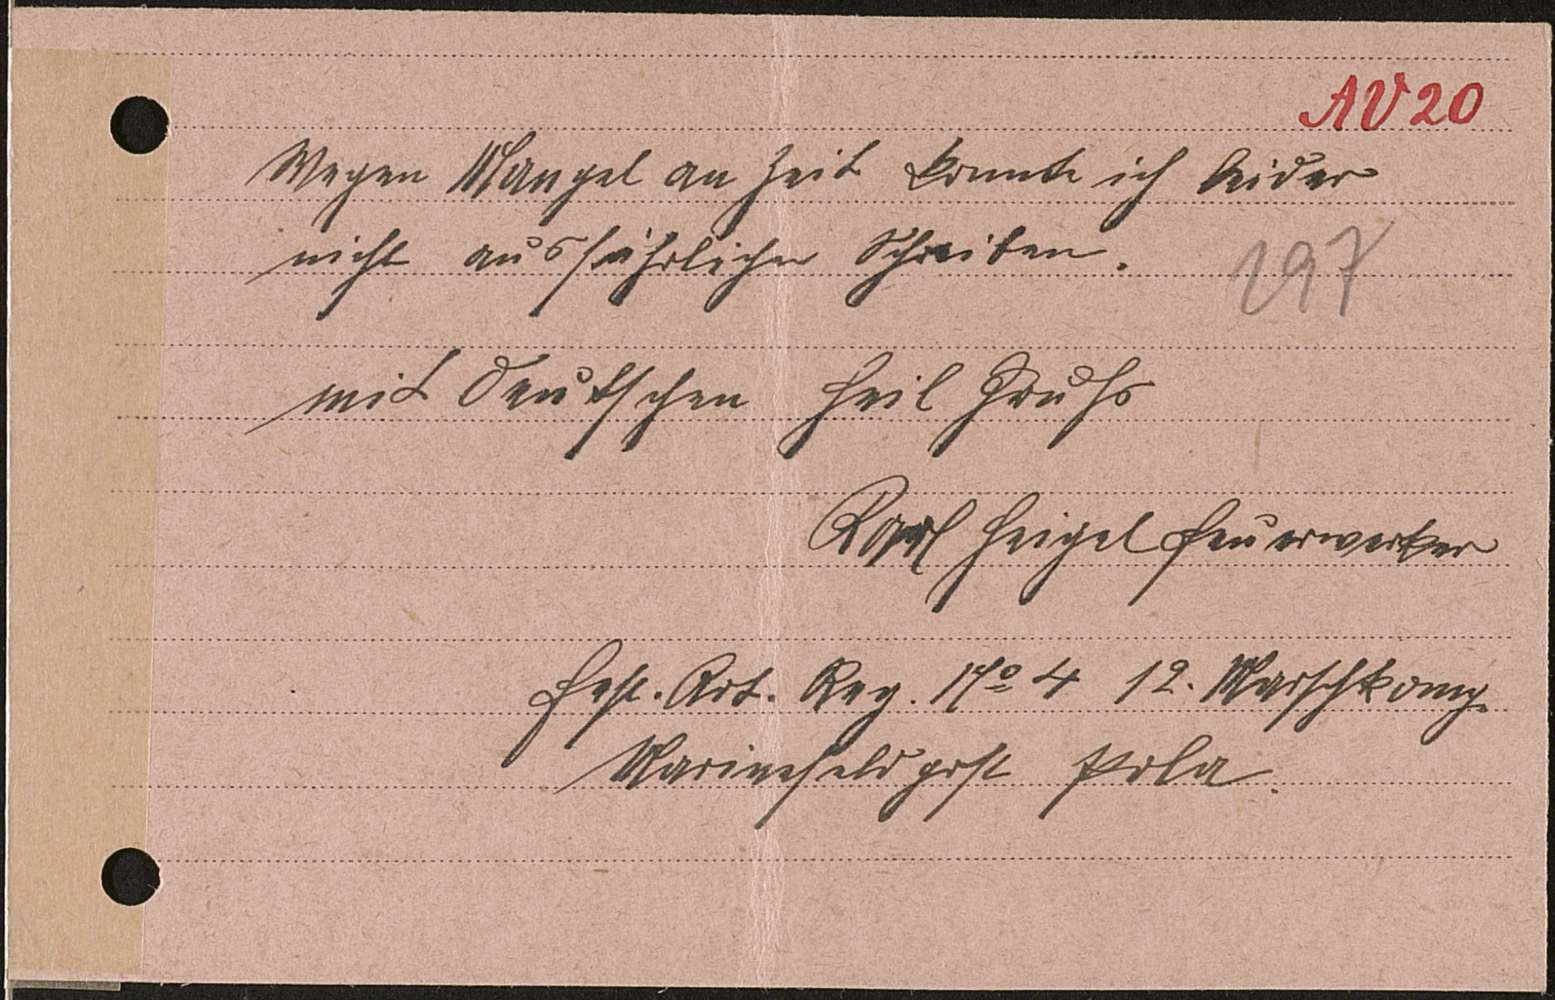 AV 20
Wegen Mangel an Zeit konnte ich leider
nicht ausführlicher Schreiben.
197
mit Deutschen Heil Gruß
Karl Heigel Feuerwerker
Fest. Art. Reg. No 4 12. Marschkomp.
Marinefeldpost Pola.